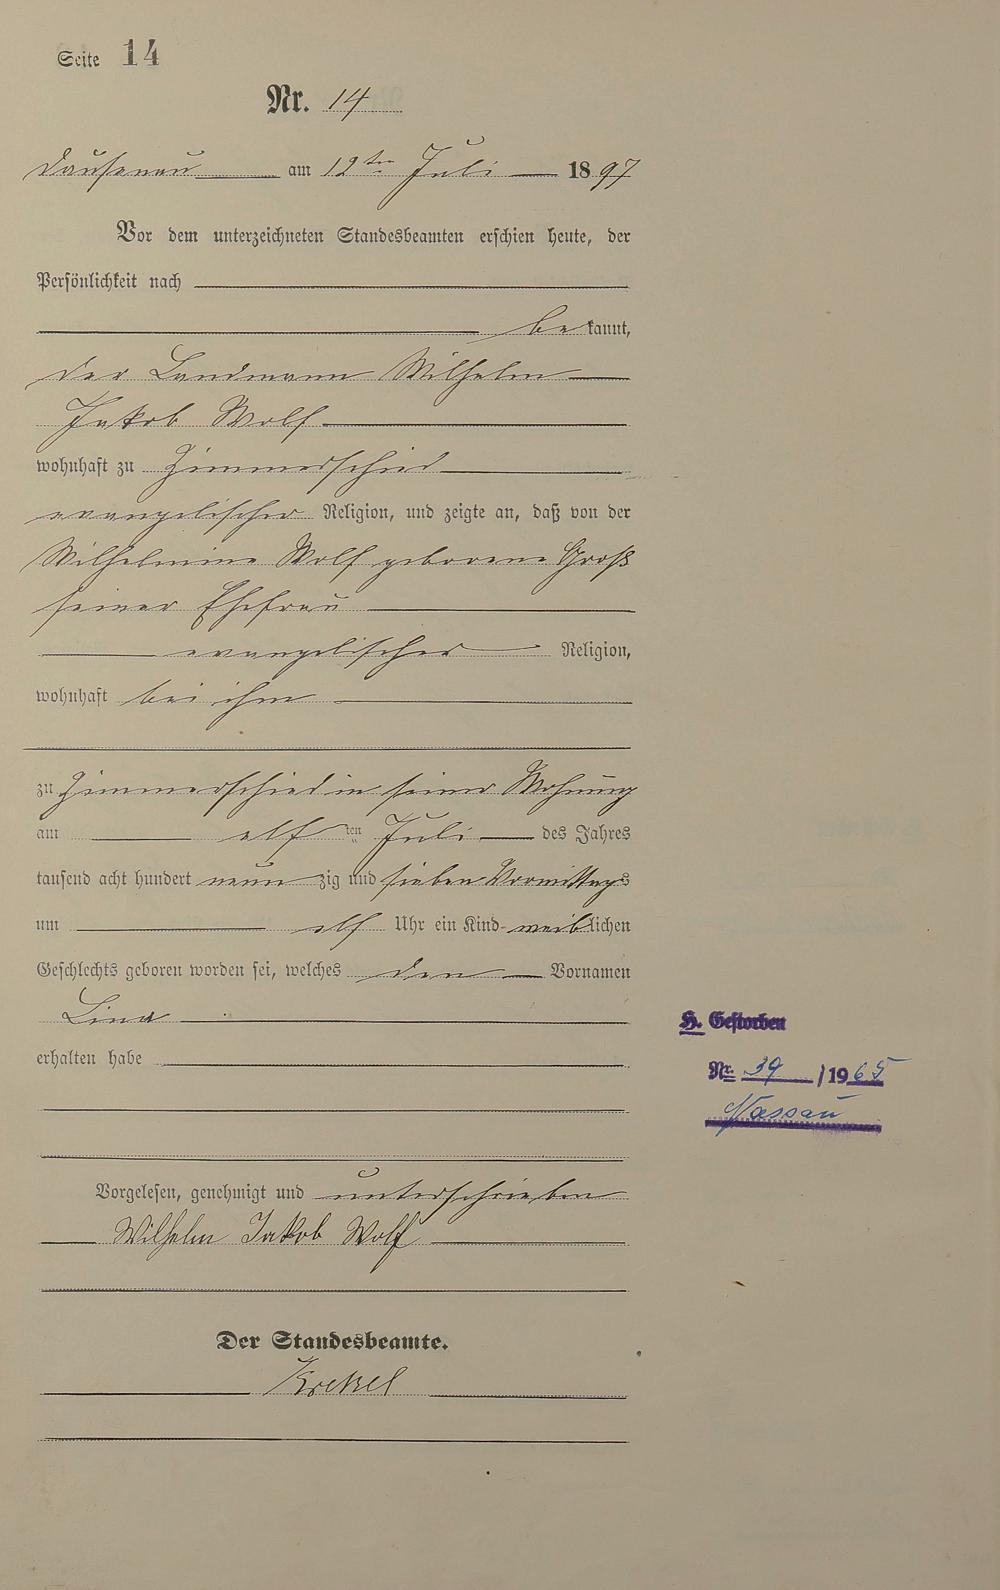 Seite 14
Nr. 14
Dausenau am 12ten Juli 1897
Vor dem unterzeichneten Standesbeamten erschien heute, der
Persönlichkeit nach
bekannt,
der Landmann Wilhelm
Jakob Wolf
wohnhaft zu Zimmerschied
evangelischer Religion, und zeigte an, daß von der
Wilhelmine Wolf geborene Groß
seiner Ehefrau
evangelischer Religion,
wohnhaft bei ihm
zu Zimmerschied in seiner Wohnung
am elf ten Juli des Jahres
tausend acht hundert neunzig und sieben Vormittags
um elf Uhr ein Kind weiblichen
Geschlechts geboren worden sei, welches den Vornamen
Lina
erhalten habe
H. Gestorben
Nr. 39 /1965
Nassau
Vorgelesen, genehmigt und unterschrieben
Wilhelm Jakob Wolf
Der Standesbeamte.
Krekel